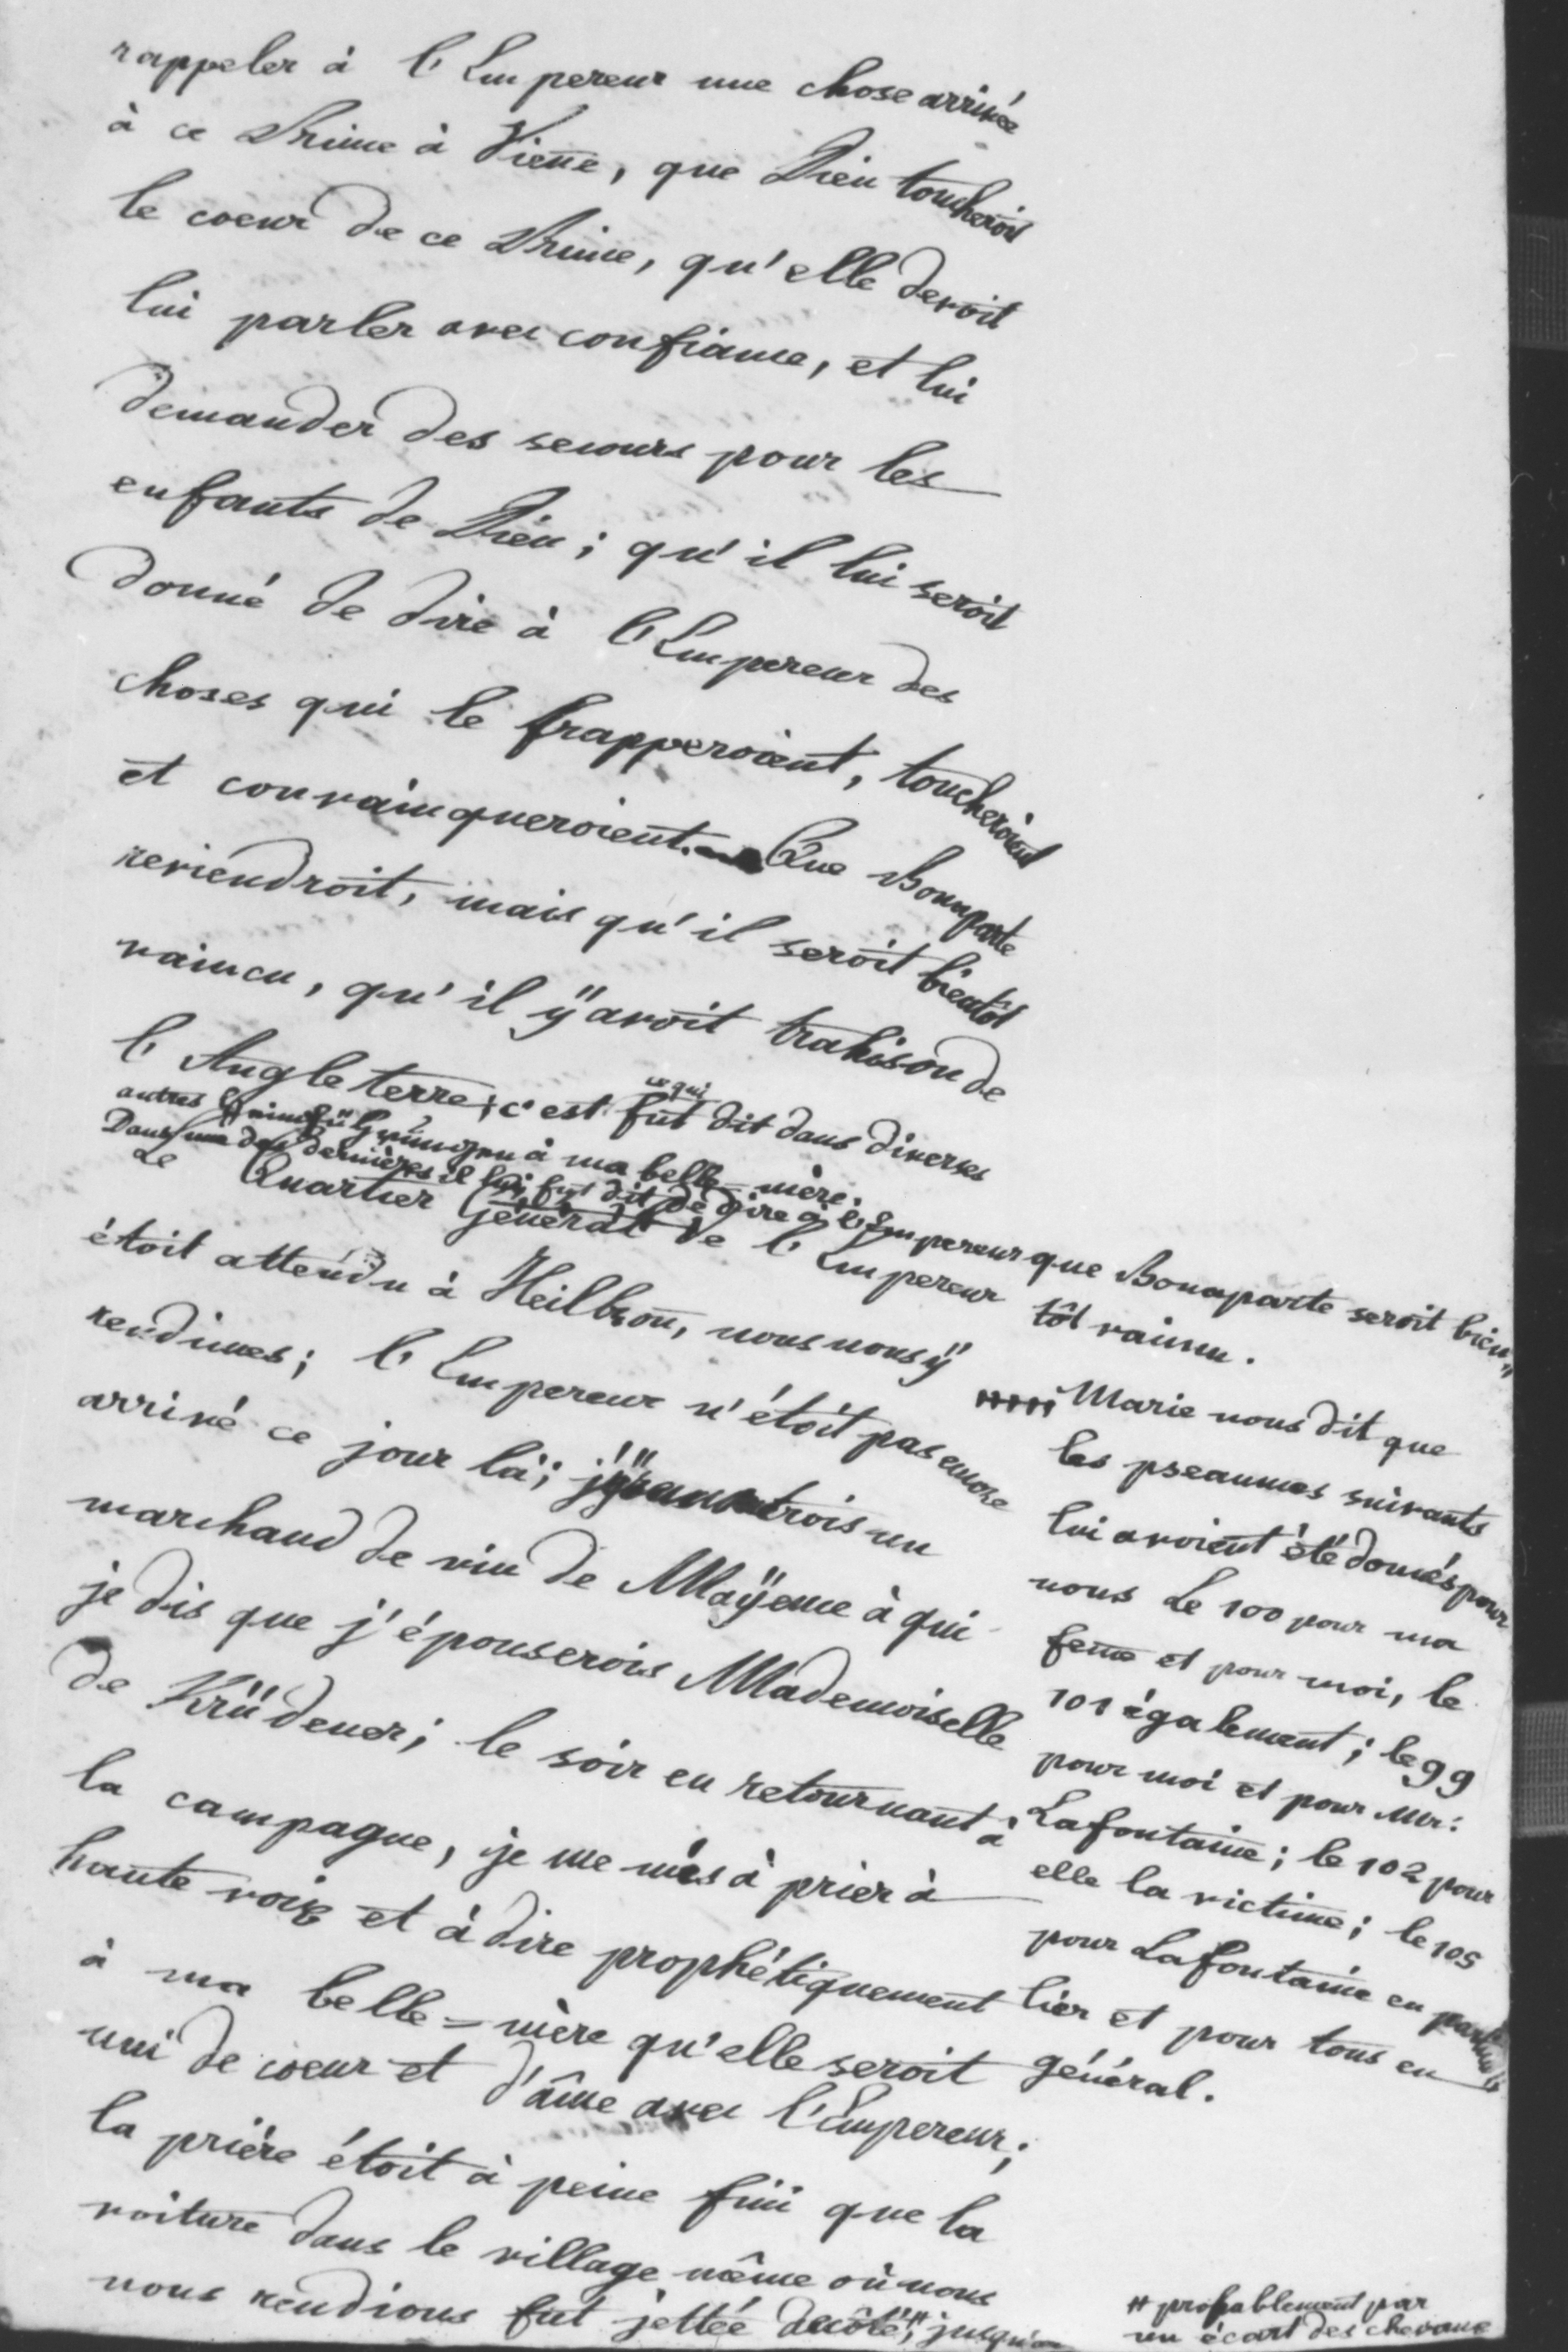 rappeler à l'Empereur une chose arrivée
à ce Prince à Viene, que Dieu toucheroit
le coeur de ce Prince, qu'elle devoit
lui parler avec confiance, et lui
demander des secours pour les
enfants de Dieu; qu'il lui seroit
donné de dire à l'Empereur des
choses qui le frapperoient, toucheroient
et convainqueroient. Que Bonnparte
reviendroit, mais qu'il seroit bientôt
vaincu, qu'il ÿ avoit trahison de
l'Angleterre; c'est ce qui fut dit dans diverses
autres à ma belle-mère.
Dans une des dernières il lui fut dit de dire à l'Empereur que Bonaparte seroit bien=
tôt vaincu.
Le Quartier Général de l'Empereur
étoit attendu à Heilbron, nous nous ÿ
rendimes; l'Empereur n'étoit pas encore
arrivé ce jour là; un
marchand de vin de Maÿence à qui
je dis que j'épouserois Mademoiselle
de Krüdener; le soir en retournant à
la campagne, je me mis à prier à
haute voix et à dire prophétiquement
à ma belle=mère qu'elle seroit
uni de coeur et d'âme avec l'Empereur;
la prière étoit à peine fini que la
voiture dans le village même où nous
nous rendions fut jettée de côté,# jusqu'au
Marie nous dit que
les pseaumes suivants
lui avoient été donnés pour
nous Le 100 pour ma
feme et pour moi, le
101 également; le 99
pour moi et pour Mr:
Lafontaine; le 102 pour
elle la victime; le 105
pour Lafontaine en particu
lier et pour tous en
général.
# probablement par
un écart des chevaux